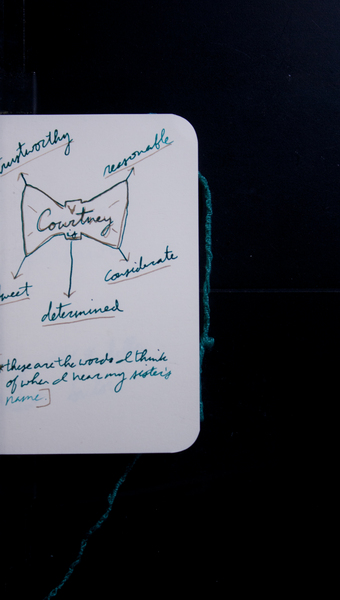 trustworthy
reasonable
Courtney
sweet
considerate
determined
*these are the words I think
of when I hear my sister's
name.]